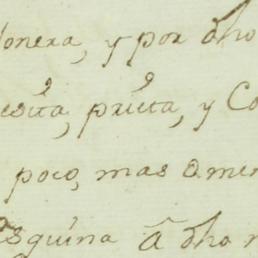 onera, y por dho
esita, prieta, y Co
poco, mas ô men
esquina â dho